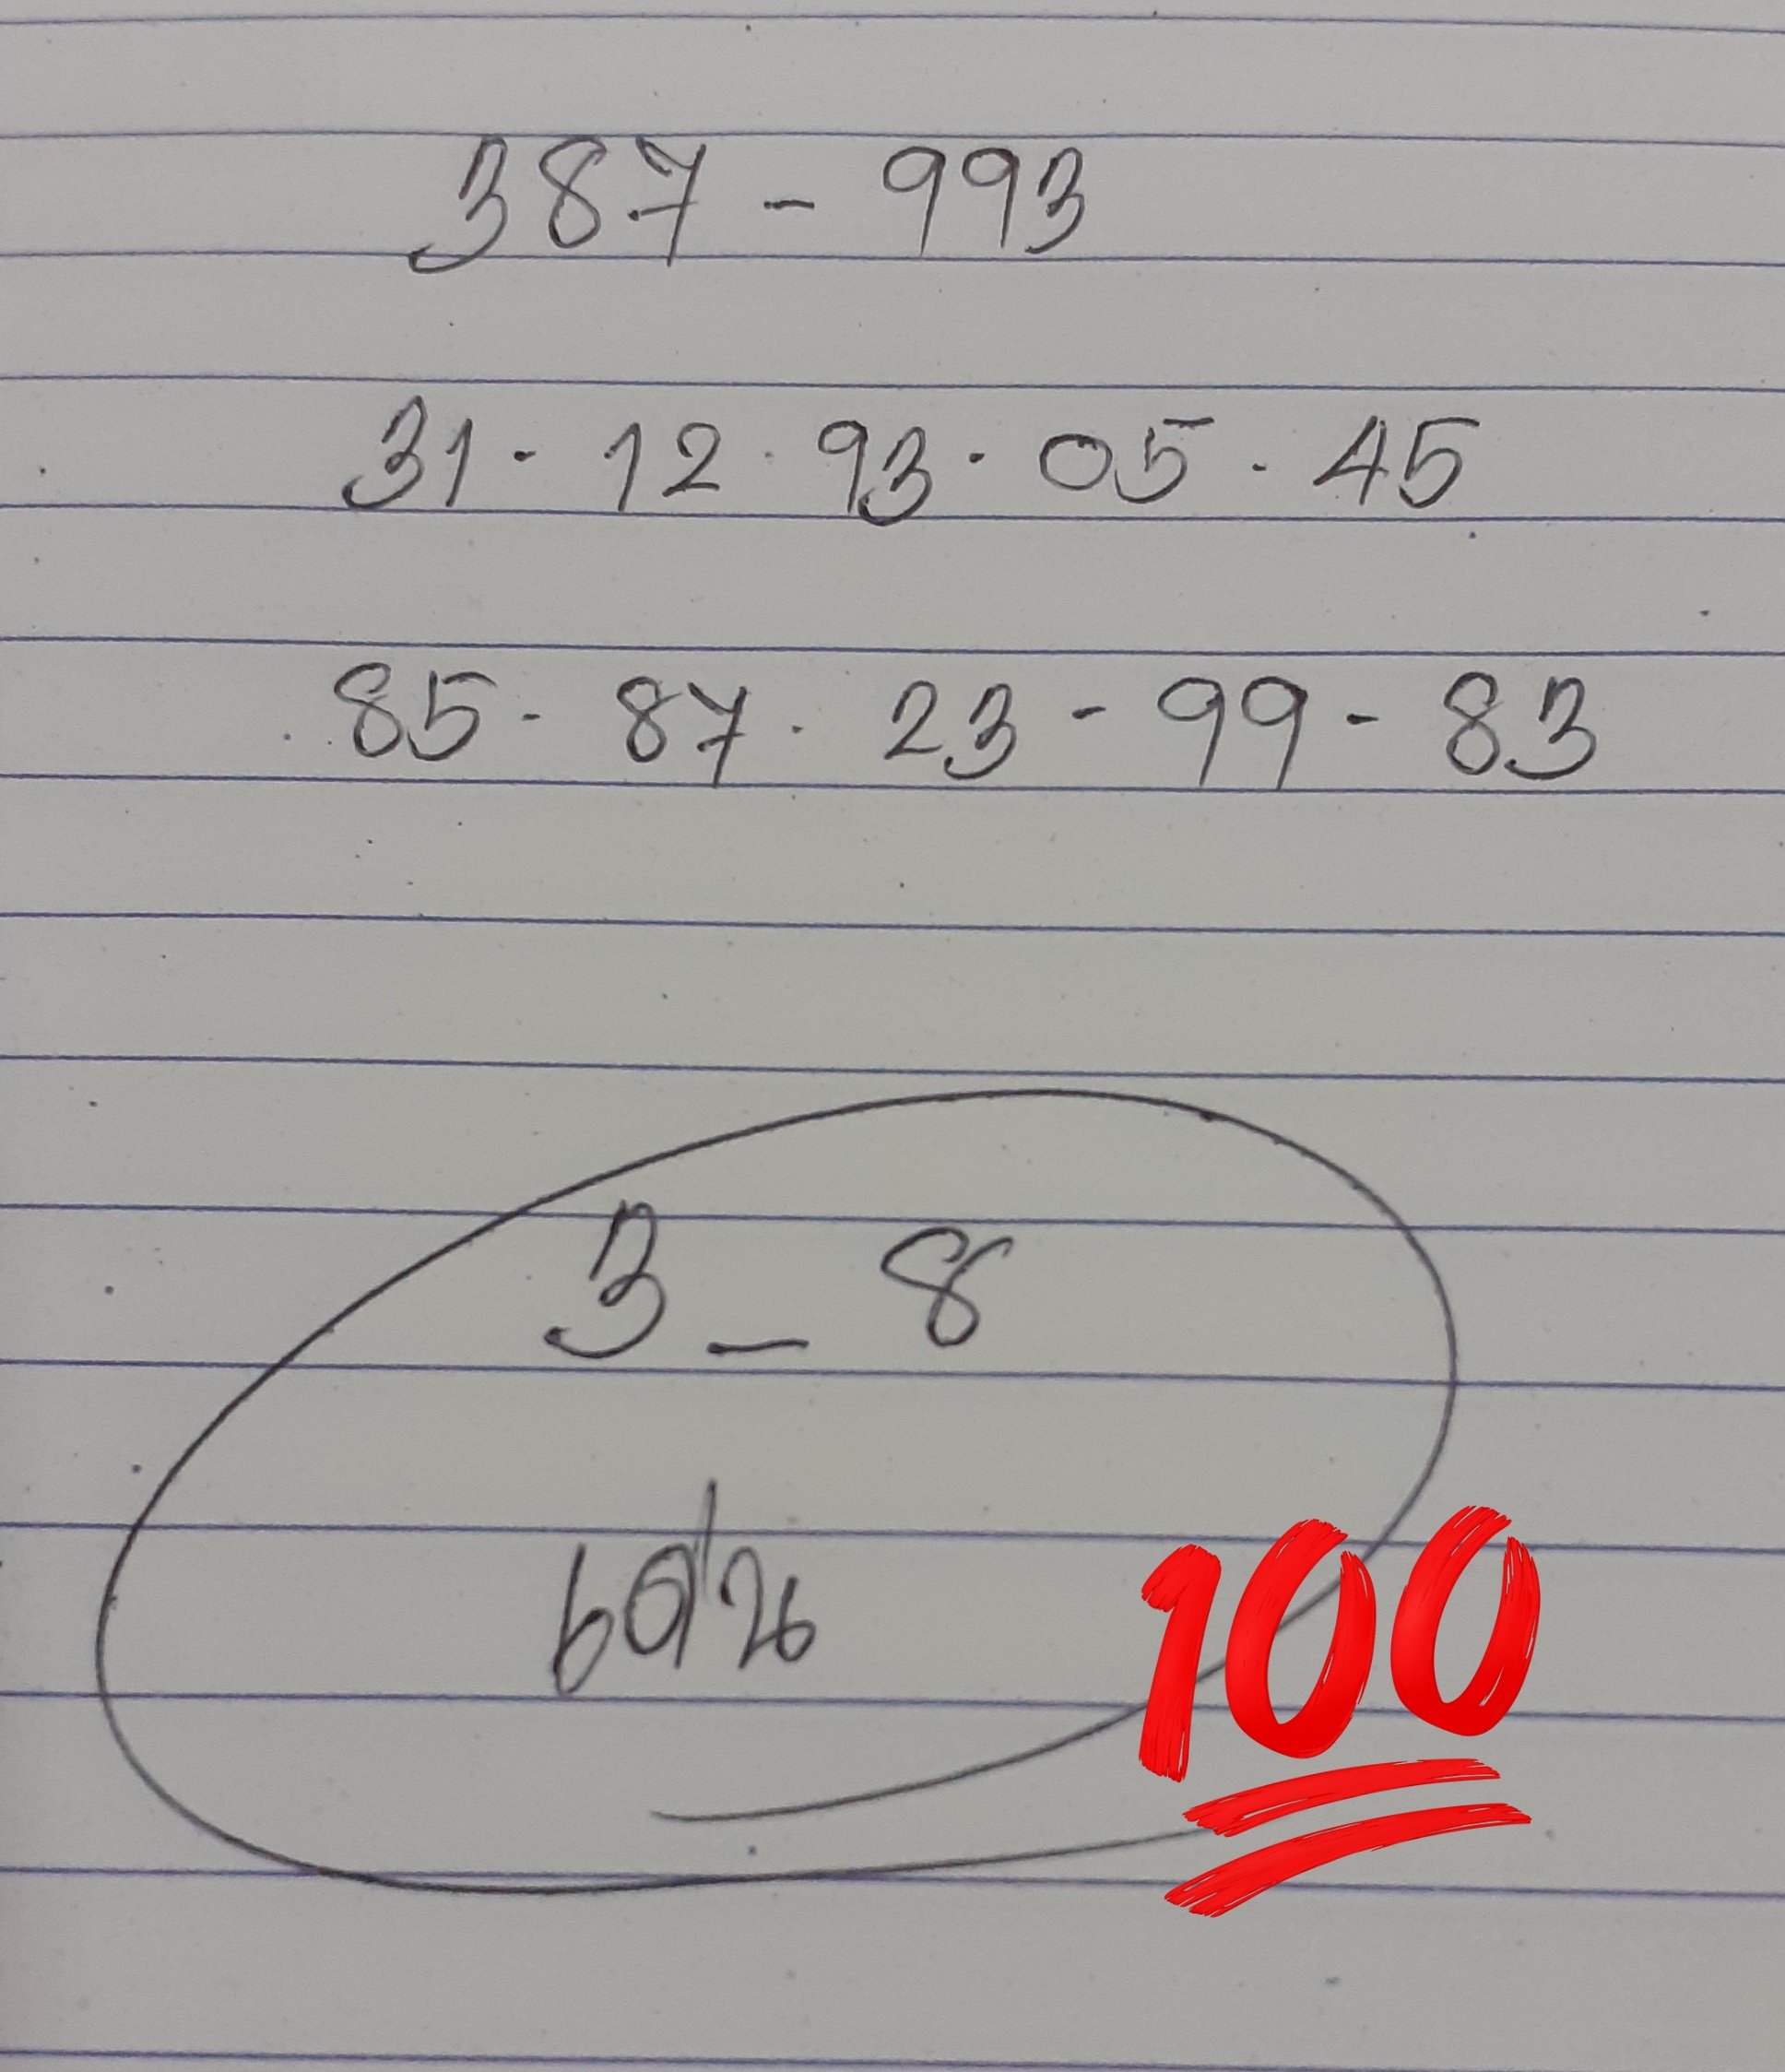 387 - 993
31 · 12 · 93 · 05 · 45
85 - 87 · 23 - 99 - 83
3 - 8
เด่น
100